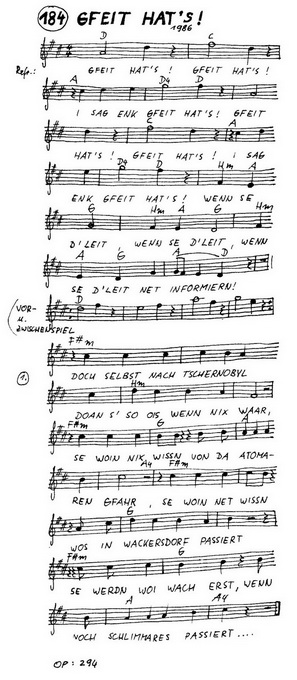 184 GFEIT HAT'S!
1986
D C
Refr.: GFEIT HAT'S! GFEIT HAT'S!
A D4 D
I SAG ENK GFEIT HAT'S! GFEIT
C A
HAT'S! GFEIT HAT'S! I SAG
D4 D Hm A
ENK GFEIT HAT'S! WENN SE
G Hm A G Hm
D'LEIT, WENN SE D'LEIT, WENN
A G A D
SE D'LEIT NET INFORMIERN!
(VOR- D
U.
ZWISCHENSPIEL
F#m
DOCH SELBST NACH TSCHERNOBYL
1. Hm
DOAN S' SO OIS WENN NIX WAAR,
F#m G A
SE WOIN NIX WISSN VON DA ATOMA-
A4 F#m
REN GFAHR, SE WOIN NET WISSN
G
WOS IN WACKERSDORF PASSIERT
F#m G
SE WERDN WOI WACH ERST, WENN
A A4
NOCH SCHLIMMARES PASSIERT....
OP: 294